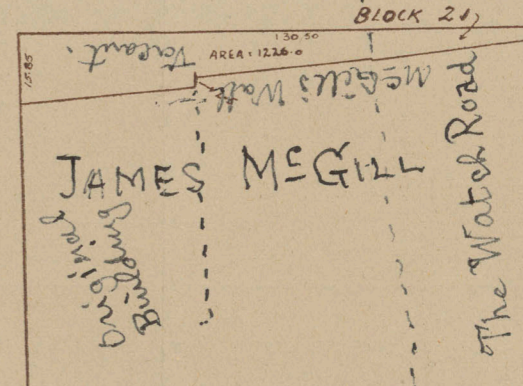 BLOCK 21
130.50
AREA = 1226.0
15.85
Vacant.
McGill's Wall
JAMES McGILL
Original
Building
The Watch Road